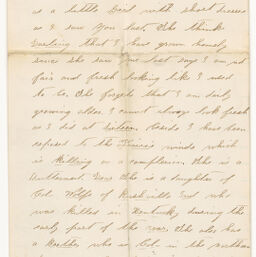 as a little Girl with short dresses
as I saw you last. She think
Darling that I have grown homely
since she saw me last says I am not
fair and fresh looking like I used
to be. She forgets that I am daily
growing older & cannot always look fresh
as I did at sixteen besides I have been
exposed to the Illinois winds which
is killing on a complexion. She is a
Gentleman. Says she is a daughter of
Col. Wolfe of Knoxville and who
was killed in Kentucky during the
early part of the war. She also has
a Brother who is Col. in the northern